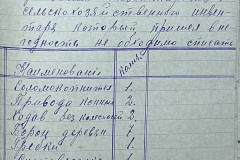 сельскохозяйственного инвен-
таря который пришел в не-
годность не обходимо списать
Наименование
Колич.
Соломокотнител 1.
Привода конные 2.
Ходов без колес 2.
Борон деревян 7.
Гребки 1.